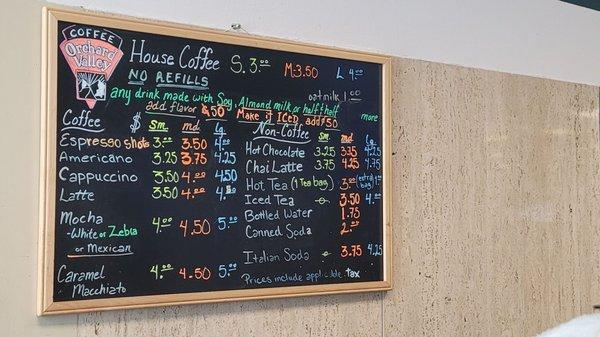 COFFEE
Orchard
Valley
House Coffee S. 3.00 M: 3.50 L 4.00
NO REFILLS
oatmilk 1.00
any drink made with Soy, Almond milk or half & half more
add flavor .50 Make it ICED add .50
Coffee $ Sm. md. Lg.
Espresso shots 3.00 3.50 4.00
Americano 3.25 3.75 4.25
Cappuccino 3.50 4.00 4.50
Latte 3.50 4.00
Mocha 4.00 4.50 5.00
-White or Zebra
or Mexican
Caramel 4.00 4.50 5.00
Macchiato
Non-Coffee Sm. md. Lg.
Hot Chocolate 3.25 3.75 4.25
Chai Latte 3.75 4.25 4.75
Hot Tea (1 Tea bag) 3.00 (extra bag) 4.00
Iced Tea 3.50 4.00
Bottled Water 1.75
Canned Soda 2.00
Italian Soda 3.75 4.25
Prices include applicable tax